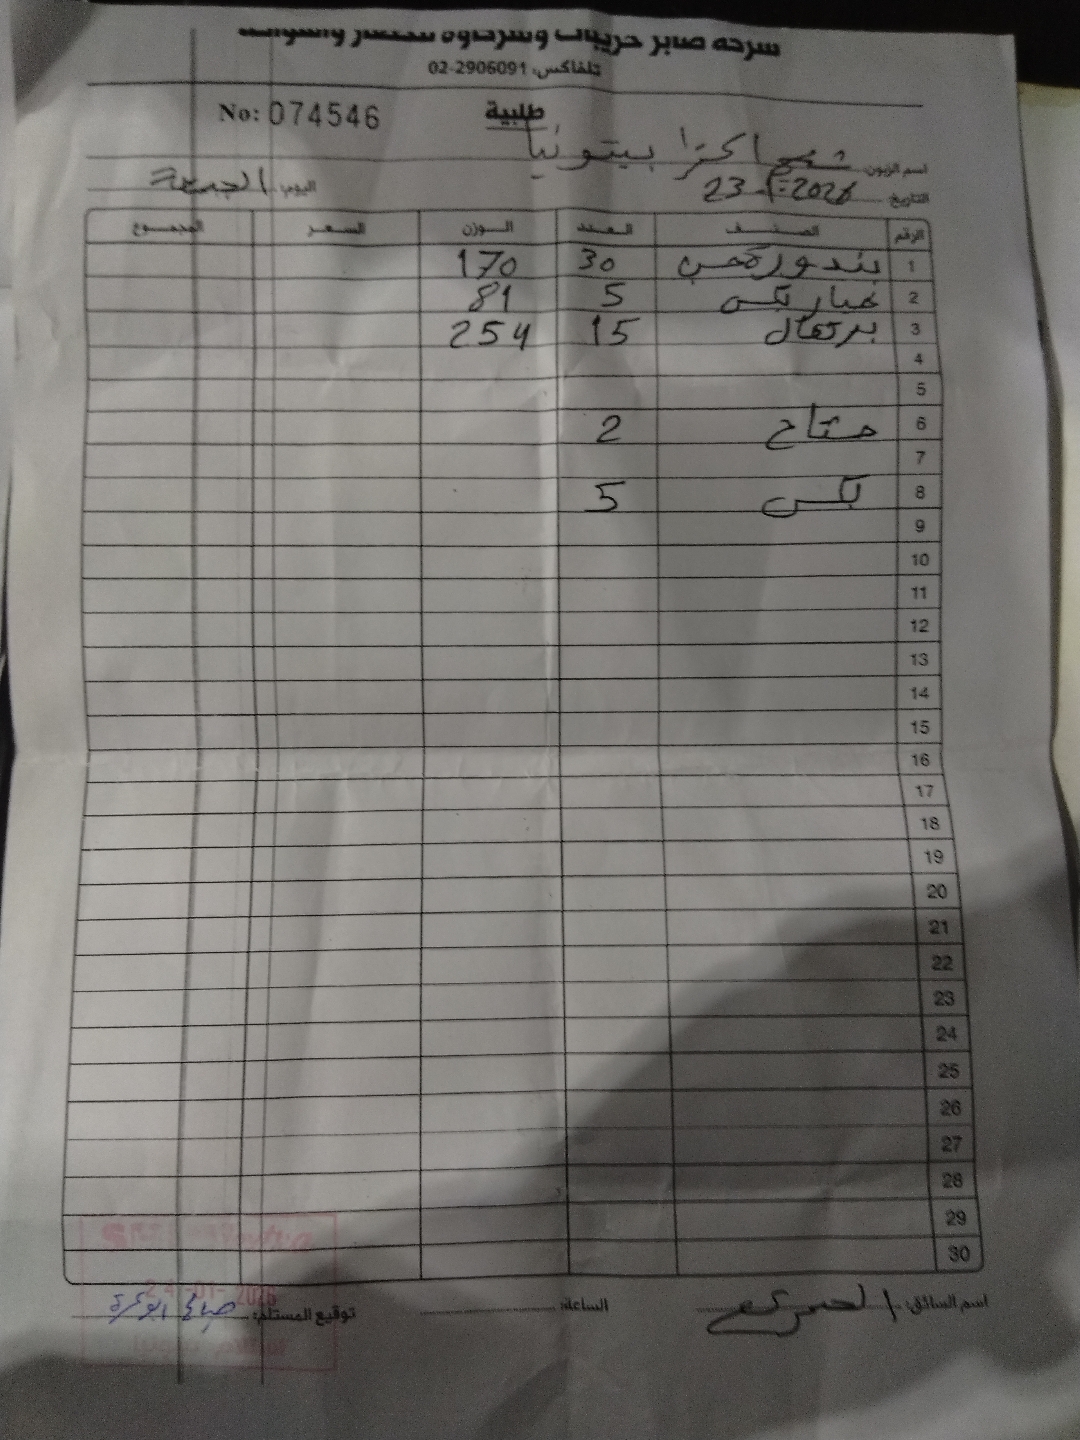 شركة صابر حريبات وشركاؤه للخضار والفواكه
تلفاكس: 02-2906091
No: 074546
طلبية
اسم الزبون: بيتونيا
التاريخ: 23-1-2026 اليوم: الجمعة
الرقم الصنف العدد الوزن السعر المجموع
1 بندورة 30 170
2 خيار بكس 5 81
3 برتقال 15 254
4
5
6 مشتاح 2
7
8 بكس 5
9
10
11
12
13
14
15
16
17
18
19
20
21
22
23
24
25
26
27
28
29
30
اسم السائق: الساعة: توقيع المستلم:
24-01-2026